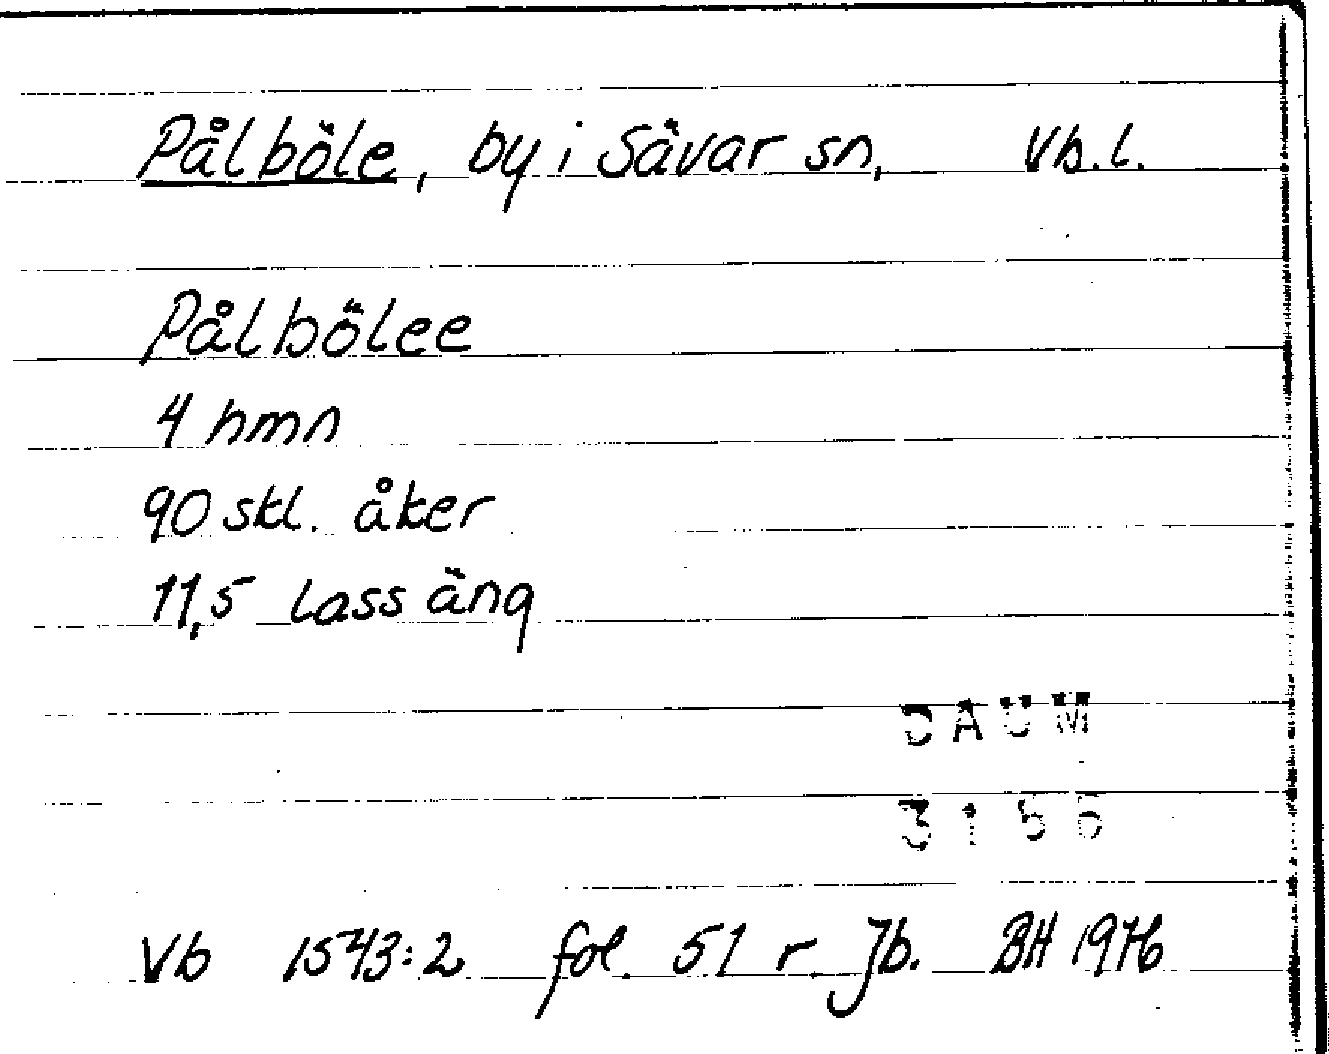 Pålböle, by i Sävar sn, Vb.l.
Pålbölee
4 hmn
90 skl. åker
11,5 lass äng
DAUM
Vb 1543:2 fol. 51 r. Jb. BH 1976